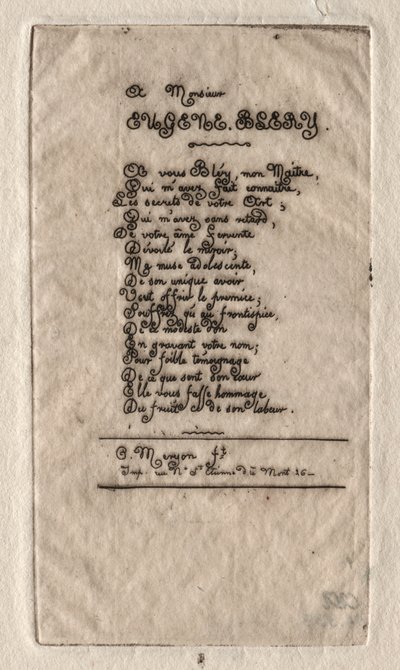 A Monsieur
EUGENE. BLERY.
A vous Bléry, mon Maître,
Qui m'avez fait connaitre,
Les secrets de votre Art;
Qui m'avez sans retard,
De votre âme fervente
Dévoilé le miroir;
Ma muse adolescente,
De son unique avoir
Veut offrir le premice;
Souffrez qu'au frontispice,
De ce modeste don
En gravant votre nom;
Pour foible témoignage
De ce que sent son cœur
Elle vous fasse hommage
Du fruit de son labeur.
C. Meryon ft
Imp. rue Ne St Etienne du Mont 26